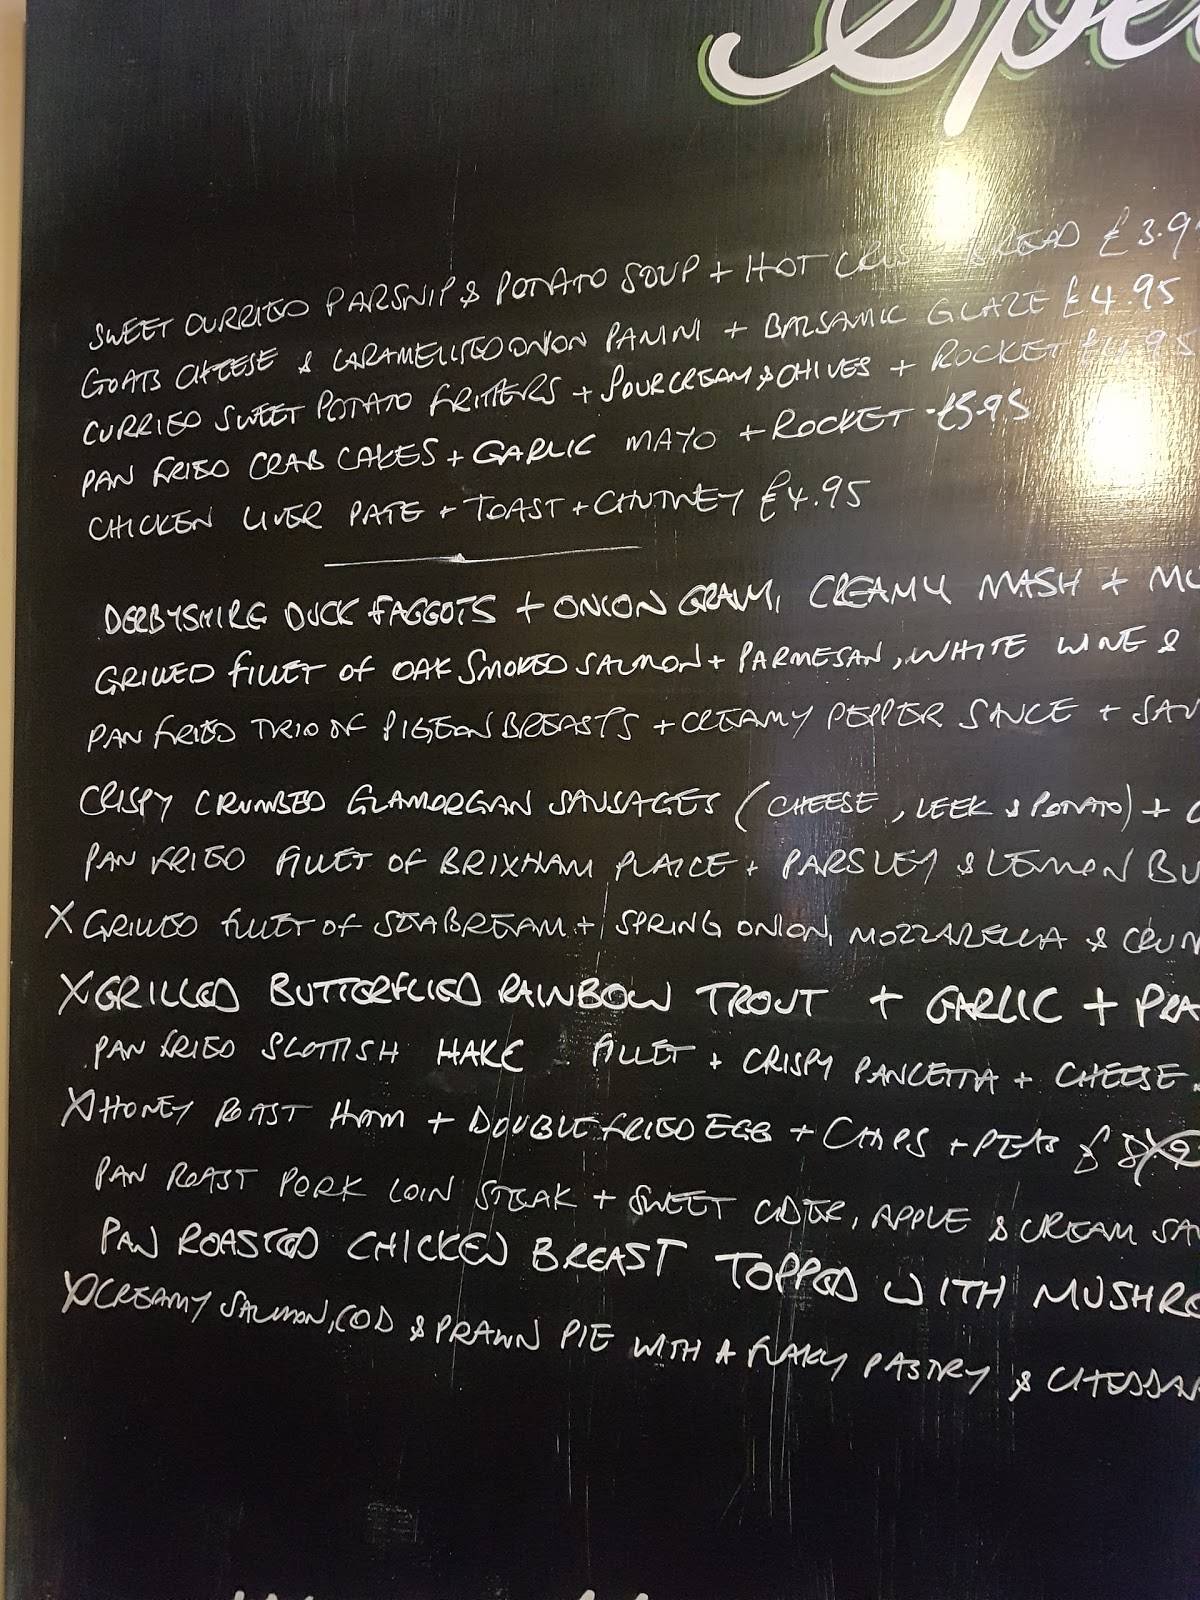 Spe
SWEET CURRIED PARSNIP & POTATO SOUP + HOT BREAD £3.9
GOATS CHEESE & CARAMELISED ONION PANINI + BALSAMIC GLAZE £4.95
CURRIED SWEET POTATO FRITTERS + SOUR CREAM & CHIVES + ROCKET £4.95
PAN FRIED CRAB CAKES + GARLIC MAYO + ROCKET - £5.95
CHICKEN LIVER PATE + TOAST + CHUTNEY £4.95
DERBYSHIRE DUCK FAGGOTS + ONION GRAVY, CREAMY MASH + MU
GRILLED FILLET OF OAK SMOKED SALMON + PARMESAN, WHITE WINE &
PAN FRIED TRIO OF PIGEON BREASTS + CREAMY PEPPER SAUCE + SAU
CRISPY CRUMBED GLAMORGAN SAUSAGES (CHEESE, LEEK & POTATO) + C
PAN FRIED FILLET OF BRIXHAM PLAICE + PARSLEY & LEMON BU
X GRILLED FILLET OF SEABREAM + SPRING ONION, MOZZARELLA & CRUM
X GRILLED BUTTERFLIED RAINBOW TROUT + GARLIC + PRA
PAN FRIED SCOTTISH HAKE FILLET + CRISPY PANCETTA + CHEESE
X HONEY ROAST HAM + DOUBLE FRIED EGG + CHIPS + PEAS £8
PAN ROAST PORK LOIN STEAK + SWEET CIDER, APPLE & CREAM SAU
PAN ROASTED CHICKEN BREAST TOPPED WITH MUSHRO
X CREAMY SALMON, COD & PRAWN PIE WITH A FLAKY PASTRY & CHEDDAR